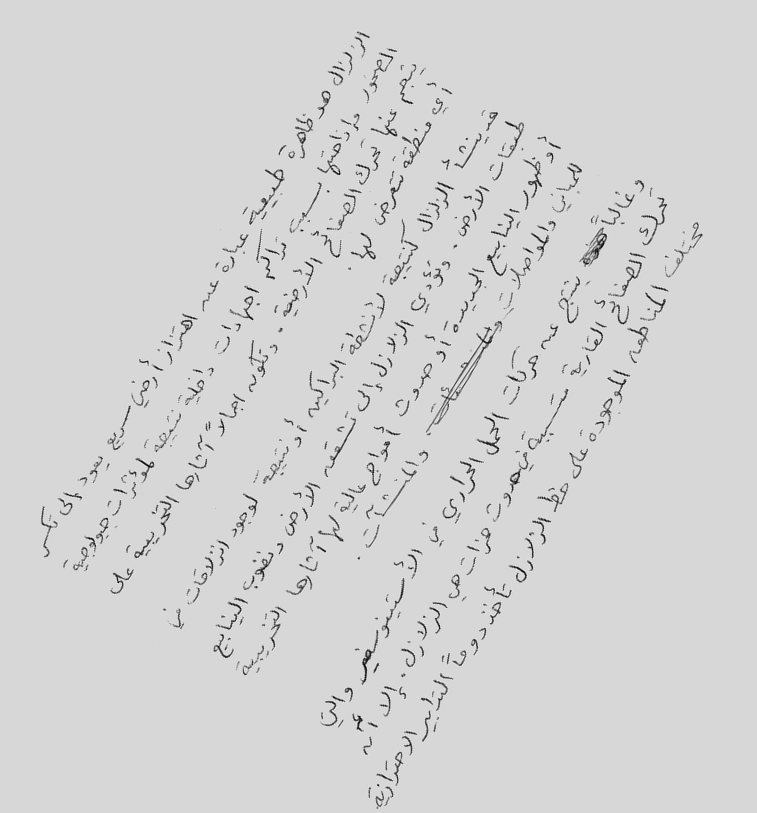 الزلزال هو ظاهرة طبيعية عبارة عن اهتزاز أرضي سريع يعود إلى تكسر
الصخور وإزاحتها بسبب تراكم اجهادات داخلية نتيجة لمؤثرات جيولوجية
ينجم عنها تحرك الصفائح الأرضية. وتكون اجمالاً آثارها التخريبية على
أي منطقة تتعرض لها.
قد ينشأ الزلزال كنتيجة لأنشطة البراكين أو نتيجة لوجود انزلاقات في
طبقات الأرض. وتؤدي الزلازل إلى تشقق الأرض ونضوب الينابيع
أو ظهور الينابيع الجديدة أو حدوث أمواج عالية لها آثارها التخريبية
للمباني والمواصلات والمنشآت.
وغالباً ينتج عن حركات الحمل الحراري في الأستينوسفير والتي
تحرك الصفائح القارية متسببة في حدوث هزات هي الزلازل. إلا أنه
مختلف المناطق الموجودة على خط الزلازل تأخذ دوماً التدابير الاحترازية